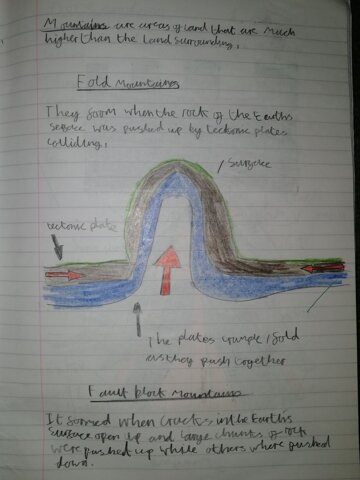 Mountains are areas of land that are much
higher than the land surrounding.
Fold Mountains
They form when the rock of the Earths
surface was pushed up by tectonic plates
colliding.
Surface
tectonic plate
The plates crumple / fold
as they push together
Fault block Mountains
It formed when cracks in the Earths
surface open up and large chunks of rock
were pushed up while others where pushed
down.